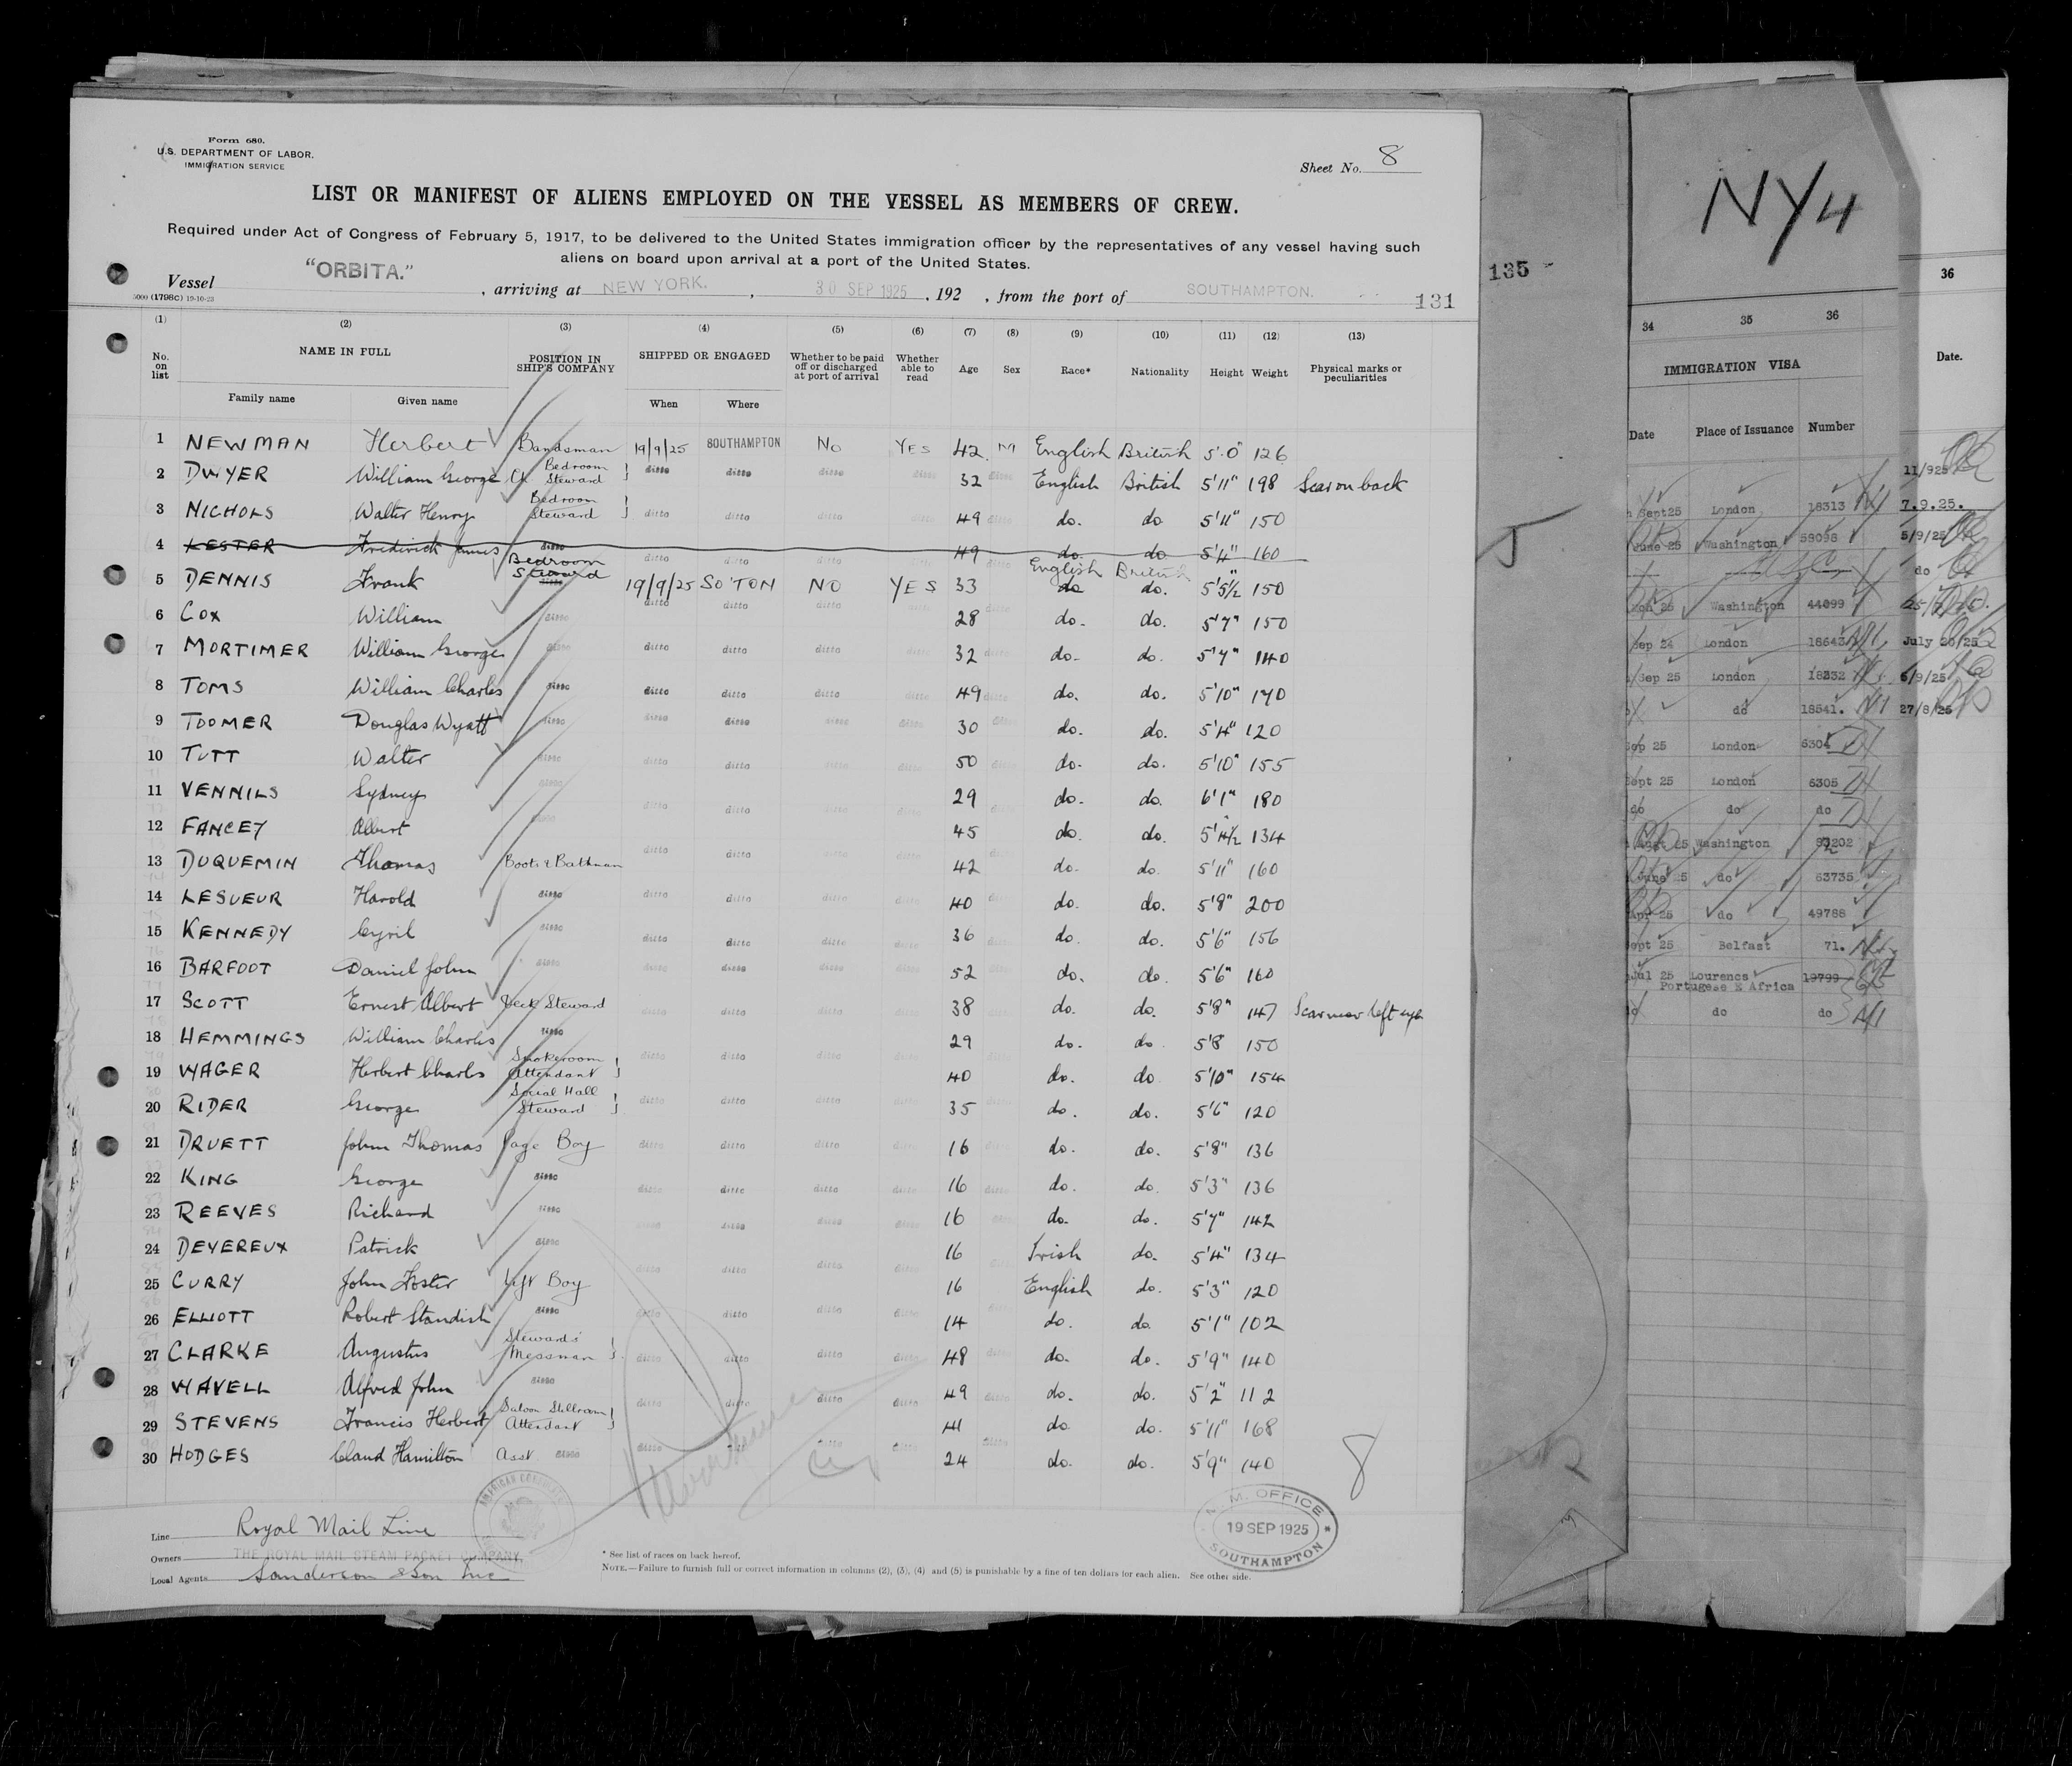 Form 680.
U.S. DEPARTMENT OF LABOR.
IMMIGRATION SERVICE
Sheet No. 8
LIST OR MANIFEST OF ALIENS EMPLOYED ON THE VESSEL AS MEMBERS OF CREW.
Required under Act of Congress of February 5, 1917, to be delivered to the United States immigration officer by the representatives of any vessel having such
aliens on board upon arrival at a port of the United States.
Vessel "ORBITA." , arriving at NEW YORK. , 30 SEP 1925 , 192 , from the port of SOUTHAMPTON. 131
5000 (1798C) 19-10-23
(1) (2) (3) (4) (5) (6) (7) (8) (9) (10) (11) (12) (13)
No. on list NAME IN FULL POSITION IN SHIP'S COMPANY SHIPPED OR ENGAGED Whether to be paid off or discharged at port of arrival Whether able to read Age Sex Race* Nationality Height Weight Physical marks or peculiarities
Family name Given name When Where
1 NEWMAN Herbert Bandsman 19/9/25 SOUTHAMPTON No YES 42 M English British 5'0" 126
2 DWYER William George Ch Bedroom Steward ditto ditto ditto ditto 32 ditto English British 5'11" 198 Scar on back
3 NICHOLS Walter Henry Bedroom Steward ditto ditto ditto ditto 49 ditto do. do 5'11" 150
4 LESTER Frederick James ditto ditto ditto ditto ditto 49 ditto do. do 5'4" 160
5 DENNIS Frank Bedroom Steward ditto 19/9/25 SO'TON NO YES 33 English British do do. 5'5½" 150
6 COX William ditto ditto ditto ditto ditto 28 ditto do. do. 5'7" 150
7 MORTIMER William George ditto ditto ditto ditto ditto 32 ditto do. do. 5'7" 140
8 TOMS William Charles ditto ditto ditto ditto ditto 49 ditto do. do. 5'10" 170
9 TOOMER Douglas Wyatt ditto ditto ditto ditto ditto 30 ditto do. do. 5'4" 120
10 TUTT Walter ditto ditto ditto ditto ditto 50 ditto do. do. 5'10" 155
11 VENNILS Sydney ditto ditto ditto 29 do. do. 6'1" 180
12 FANCEY Albert ditto 45 do. do. 5'4½" 134
13 DUQUEMIN Thomas Boots & Bathman ditto ditto ditto ditto 42 ditto do. do. 5'11" 160
14 LESUEUR Harold ditto ditto ditto ditto ditto 40 ditto do. do. 5'8" 200
15 KENNEDY Cyril ditto ditto ditto ditto ditto 36 ditto do. do. 5'6" 156
16 BARFOOT Daniel John ditto ditto ditto ditto ditto 52 ditto do. do. 5'6" 160
17 SCOTT Ernest Albert Deck Steward ditto ditto ditto ditto 38 ditto do. do. 5'8" 147 Scar near left eye
18 HEMMINGS William Charles ditto 29 do. do 5'8 150
19 WAGER Herbert Charles Smokeroom Attendant ditto ditto ditto ditto 40 ditto do. do 5'10" 154
20 RIDER George Social Hall Steward ditto ditto ditto ditto 35 ditto do. do. 5'6" 120
21 DRUETT John Thomas Page Boy ditto ditto ditto ditto 16 ditto do. do. 5'8" 136
22 KING George ditto ditto ditto ditto ditto 16 ditto do. do. 5'3" 136
23 REEVES Richard ditto ditto ditto ditto ditto 16 ditto do. do. 5'7" 142
24 DEVEREUX Patrick ditto ditto ditto ditto ditto 16 ditto Irish do. 5'4" 134
25 CURRY John Foster Lift Boy 16 English do. 5'3" 120
26 ELLIOTT Robert Standish ditto ditto ditto ditto ditto 14 ditto do. do. 5'1" 102
27 CLARKE Augustus Stewards' Messman ditto ditto ditto ditto 48 ditto do. do. 5'9" 140
28 WAVELL Alfred John ditto ditto ditto ditto ditto 49 ditto do. do. 5'2" 112
29 STEVENS Francis Herbert Saloon Stillroom Attendant 41 do. do. 5'11" 168
30 HODGES Claud Hamilton Asst. ditto ditto ditto ditto ditto 24 ditto do. do. 5'9" 140
8
AMERICAN CONSULATE
Line Royal Mail Line
Owners THE ROYAL MAIL STEAM PACKET COMPANY.
Local Agents Sanderson & Son Inc
* See list of races on back hereof.
NOTE.—Failure to furnish full or correct information in columns (2), (3), (4) and (5) is punishable by a fine of ten dollars for each alien. See other side.
M. OFFICE
19 SEP 1925
SOUTHAMPTON
135
NY4
34 35 36
IMMIGRATION VISA
Date Place of Issuance Number
Sept 25 London 18313
June 25 Washington 59098
25 Washington 44099
Sep 24 London 18643
Sep 25 London 18232
do 18541.
Sep 25 London 6304
Sept 25 London 6305
do do do
Augt 25 Washington
June 25 do 63735
Apr 25 do 49788
Sept 25 Belfast 71.
Jul 25 Lourencs 19799
Portugese E Africa
do do do
36
Date.
11/925
7.9.25.
5/9/25
do
July 20/25
6/9/25
27/8/25